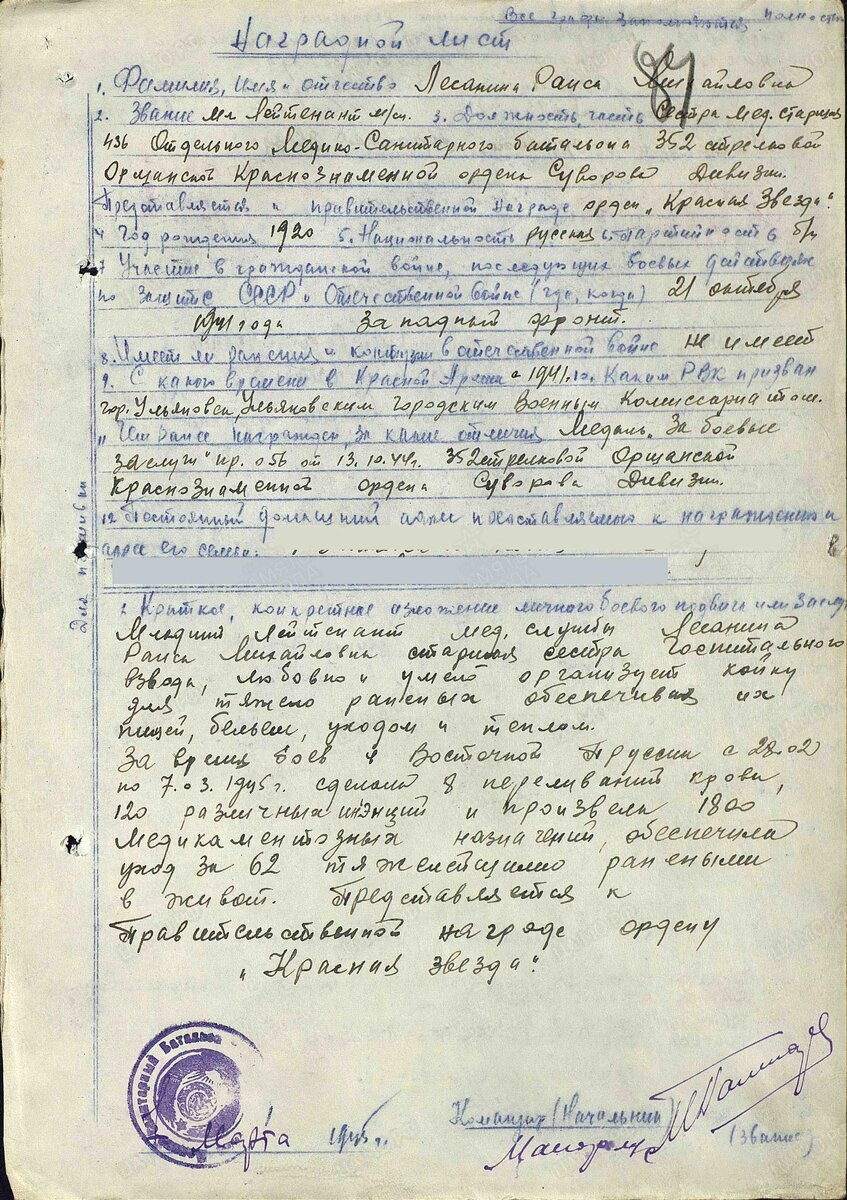 Все графы заполняются полностью
Наградной лист
81
1. Фамилия, имя и отчество Лесанина Раиса Михайловна
2. Звание Мл Лейтенант м/сл. 3. Должность, часть Сестра мед. старшая
436 Отдельного Медико-Санитарного батальона 352 стрелковой
Оршанской Краснознаменной ордена Суворова Дивизии.
Представляется к правительственной награде орден „Красная Звезда".
4 Год рождения 1920 5. Национальность русская 6. партийность б/п
7 Участие в гражданской войне, последующих боевых действиях
по защите СССР и Отечественной войне (где, когда) 21 октября
1941 года Западный фронт.
8. Имеет ли ранения и контузии в отечественной войне не имеет
9. С какого времени в Красной Армии с 1941. 10. Каким РВК призван
гор. Ульяновск, Ульяновским Городским Военным Комиссариатом.
11 Чем ранее награжден, за какие отличия Медаль „За боевые
заслуги" пр. 056 от 13.10.44г. 352 стрелковой Оршанской
Краснознаменной ордена Суворова Дивизии.
12 Постоянный домашний адрес представляемого к награждению и
адрес его семьи:
Для подшивки
1. Краткое, конкретное изложение личного боевого подвига или заслуг
Младший лейтенант мед. службы Лесанина
Раиса Михайловна старшая сестра Госпитального
взвода, любовно и умело организует койку
для тяжело раненых обеспечивая их
пищей, бельем, уходом и теплом.
За время боев в Восточной Пруссии с 28.02
по 7.03.1945г. сделала 8 переливаний крови,
120 различных инъэкций и произвела 1800
медикаментозных назначений, обеспечила
уход за 62 тяжелейшими ранеными
в живот. Представляется к
Правительственной награде ордену
„Красная звезда".
Санитарный Батальон
Командир (Начальник)
Марта 1945г.
Майор м/с
(звание)